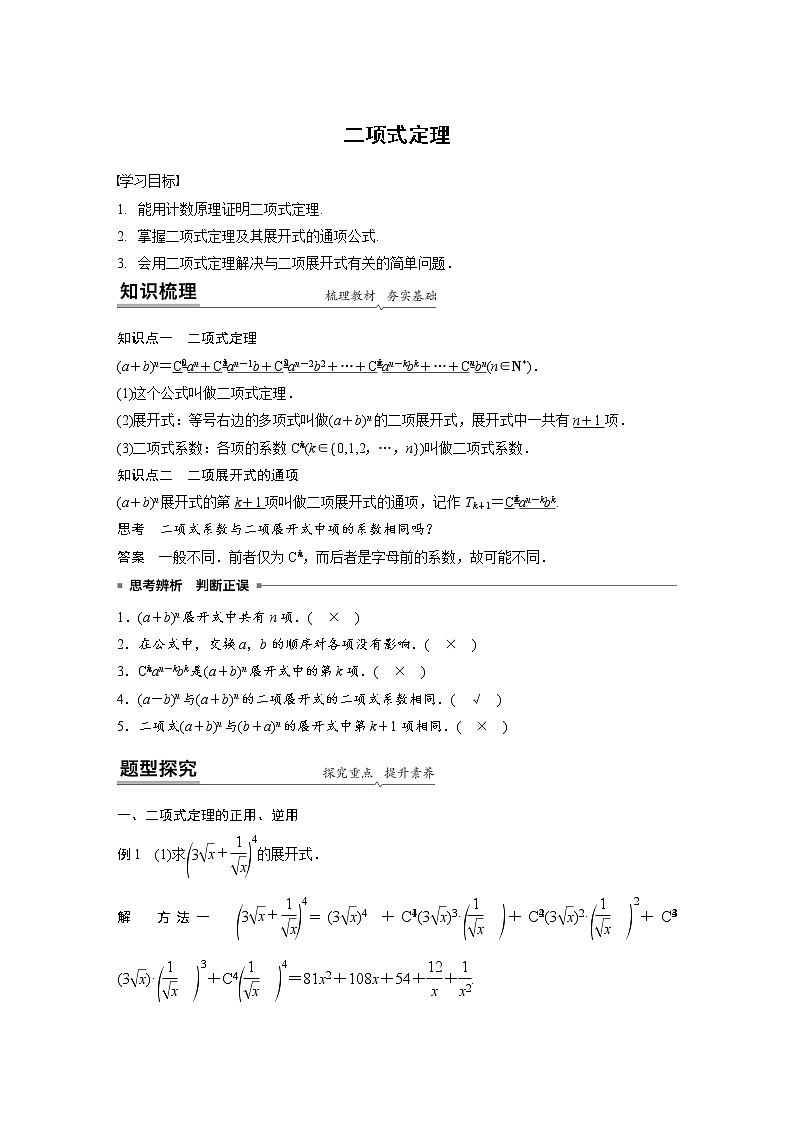 二项式定理
学习目标
1. 能用计数原理证明二项式定理.
2. 掌握二项式定理及其展开式的通项公式.
3. 会用二项式定理解决与二项展开式有关的简单问题.
知识梳理 梳理教材 夯实基础
知识点一 二项式定理
(a+b)ⁿ=C⁰ₙaⁿ+C¹ₙaⁿ⁻¹b+C²ₙaⁿ⁻²b²+…+Cᵏₙaⁿ⁻ᵏbᵏ+…+Cⁿₙbⁿ(n∈N*).
(1)这个公式叫做二项式定理.
(2)展开式:等号右边的多项式叫做(a+b)ⁿ的二项展开式,展开式中一共有n+1项.
(3)二项式系数:各项的系数Cᵏₙ(k∈{0,1,2,…,n})叫做二项式系数.
知识点二 二项展开式的通项
(a+b)ⁿ展开式的第k+1项叫做二项展开式的通项,记作Tₖ₊₁=Cᵏₙaⁿ⁻ᵏbᵏ.
思考 二项式系数与二项展开式中项的系数相同吗?
答案 一般不同.前者仅为Cᵏₙ,而后者是字母前的系数,故可能不同.
思考辨析 判断正误
1.(a+b)ⁿ展开式中共有n项.( × )
2.在公式中,交换a,b的顺序对各项没有影响.( × )
3.Cᵏₙaⁿ⁻ᵏbᵏ是(a+b)ⁿ展开式中的第k项.( × )
4.(a-b)ⁿ与(a+b)ⁿ的二项展开式的二项式系数相同.( √ )
5.二项式(a+b)ⁿ与(b+a)ⁿ的展开式中第k+1项相同.( × )
题型探究 探究重点 提升素养
一、二项式定理的正用、逆用
例1 (1)求(3√x+1/√x)⁴的展开式.
解 方法一 (3√x+1/√x)⁴=(3√x)⁴+C¹₄(3√x)³·(1/√x)+C²₄(3√x)²·(1/√x)²+C³₄
(3√x)·(1/√x)³+C⁴₄(1/√x)⁴=81x²+108x+54+12/x+1/x².